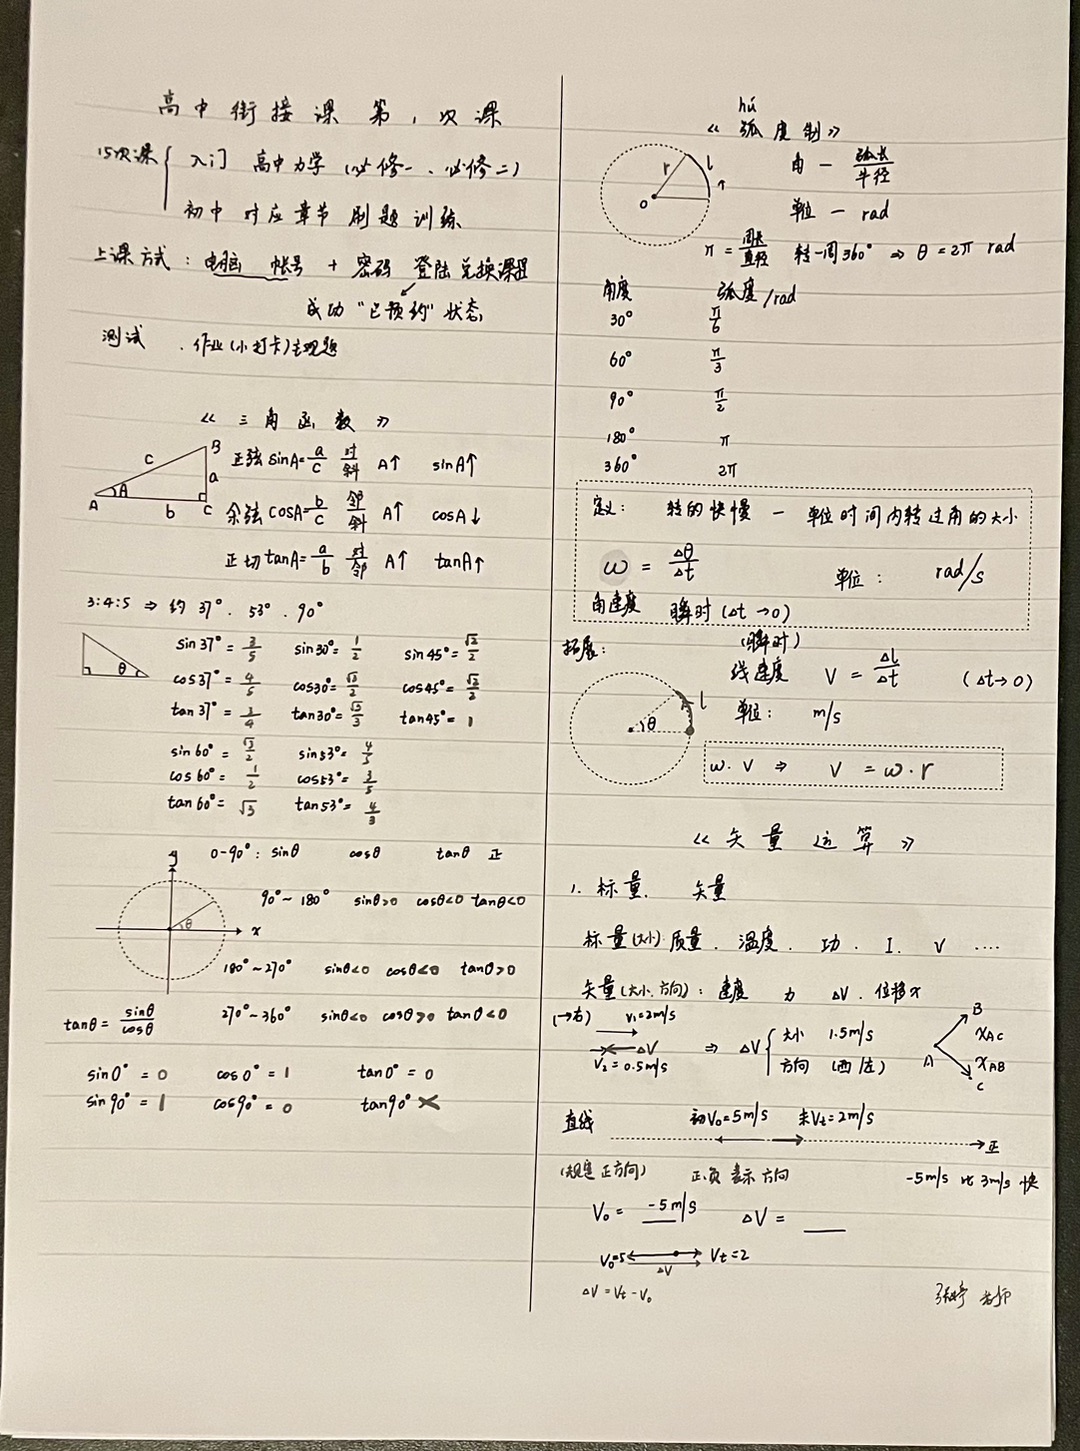 高中衔接课第1次课
15次课 入门 高中力学(必修一、必修二)
初中对应章节刷题训练
上课方式：电脑 帐号 + 密码 登陆兑换课程
成功"已预约"状态
测试 . 作业(小打卡)主观题
《三角函数》
B
c
a
A A
b C
正弦 sinA=a/c 对/斜 A↑ sinA↑
余弦 cosA=b/c 邻/斜 A↑ cosA↓
正切 tanA=a/b 对/邻 A↑ tanA↑
3:4:5 ⇒ 约 37°. 53°. 90°
θ
sin37°=3/5 sin30°=1/2 sin45°=√2/2
cos37°=4/5 cos30°=√3/2 cos45°=√2/2
tan37°=3/4 tan30°=√3/3 tan45°=1
sin60°=√3/2 sin53°=4/5
cos60°=1/2 cos53°=3/5
tan60°=√3 tan53°=4/3
y
x
θ
0-90°: sinθ cosθ tanθ 正
90°~180° sinθ>0 cosθ<0 tanθ<0
180°~270° sinθ<0 cosθ<0 tanθ>0
tanθ=sinθ/cosθ 270°~360° sinθ<0 cosθ>0 tanθ<0
sin0°=0 cos0°=1 tan0°=0
sin90°=1 cos90°=0 tan90° ×
hú
《弧度制》
r l
o
角 — 弧长/半径
单位 — rad
π=周长/直径 转一周360° ⇒ θ=2π rad
角度 弧度/rad
30° π/6
60° π/3
90° π/2
180° π
360° 2π
定义： 转的快慢 — 单位时间内转过角的大小
ω = Δθ/Δt 单位： rad/s
角速度 瞬时(Δt→0)
拓展： (瞬时)
线速度 V = Δl/Δt (Δt→0)
l
θ
单位： m/s
ω. V ⇒ V = ω·r
《矢量运算》
1. 标量. 矢量
标量(大小) 质量. 温度. 功. I. V ....
矢量(大小.方向)：速度 力 ΔV. 位移x
(→右) V₁=2m/s
ΔV
V₂=0.5m/s
⇒ ΔV { 大小 1.5m/s
方向 (西/左)
A B C
xAC
xAB
直线 初V₀=5m/s 末Vt=2m/s
正
(规定正方向) 正.负表示方向 -5m/s 比 3m/s 快
V₀= -5m/s ΔV=
V₀=5 Vt=2
ΔV
ΔV=Vt-V₀
老师